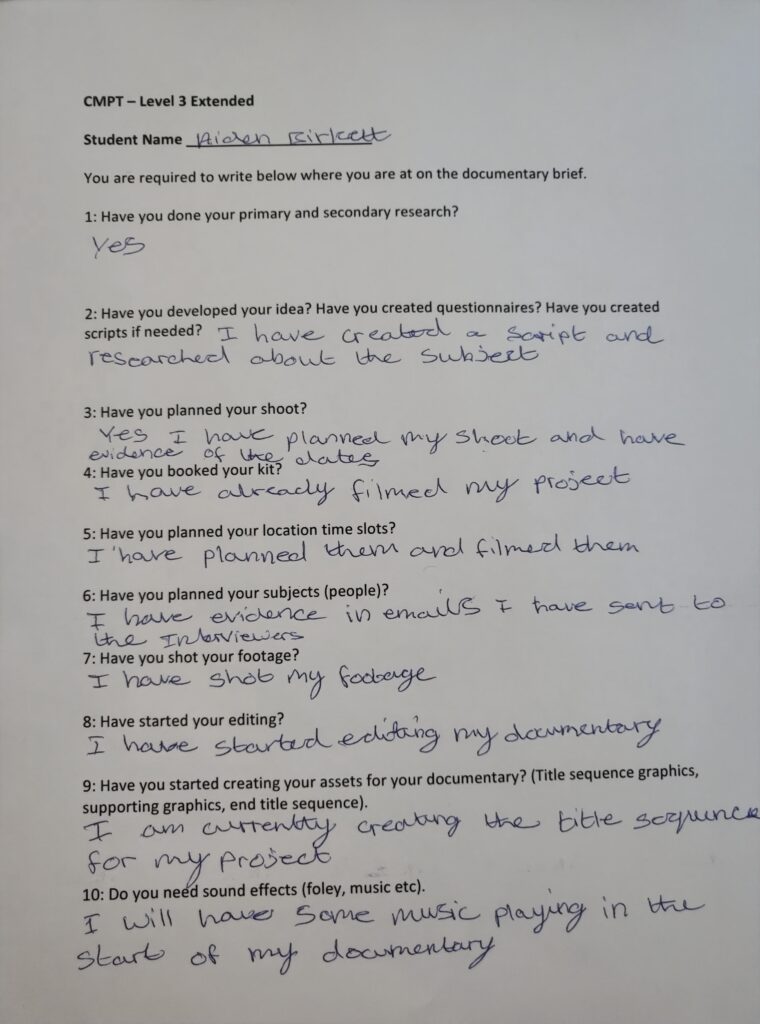 CMPT – Level 3 Extended
Student Name Aiden Birkett
You are required to write below where you are at on the documentary brief.
1: Have you done your primary and secondary research?
Yes
2: Have you developed your idea? Have you created questionnaires? Have you created
scripts if needed? I have created a script and
researched about the subject
3: Have you planned your shoot?
Yes I have planned my shoot and have
evidence of the dates
4: Have you booked your kit?
I have already filmed my project
5: Have you planned your location time slots?
I have planned them and filmed them
6: Have you planned your subjects (people)?
I have evidence in emails I have sent to
the Interviewers
7: Have you shot your footage?
I have shot my footage
8: Have started your editing?
I have started editing my documentary
9: Have you started creating your assets for your documentary? (Title sequence graphics,
supporting graphics, end title sequence).
I am currently creating the title sequence
for my project
10: Do you need sound effects (foley, music etc).
I will have some music playing in the
start of my documentary